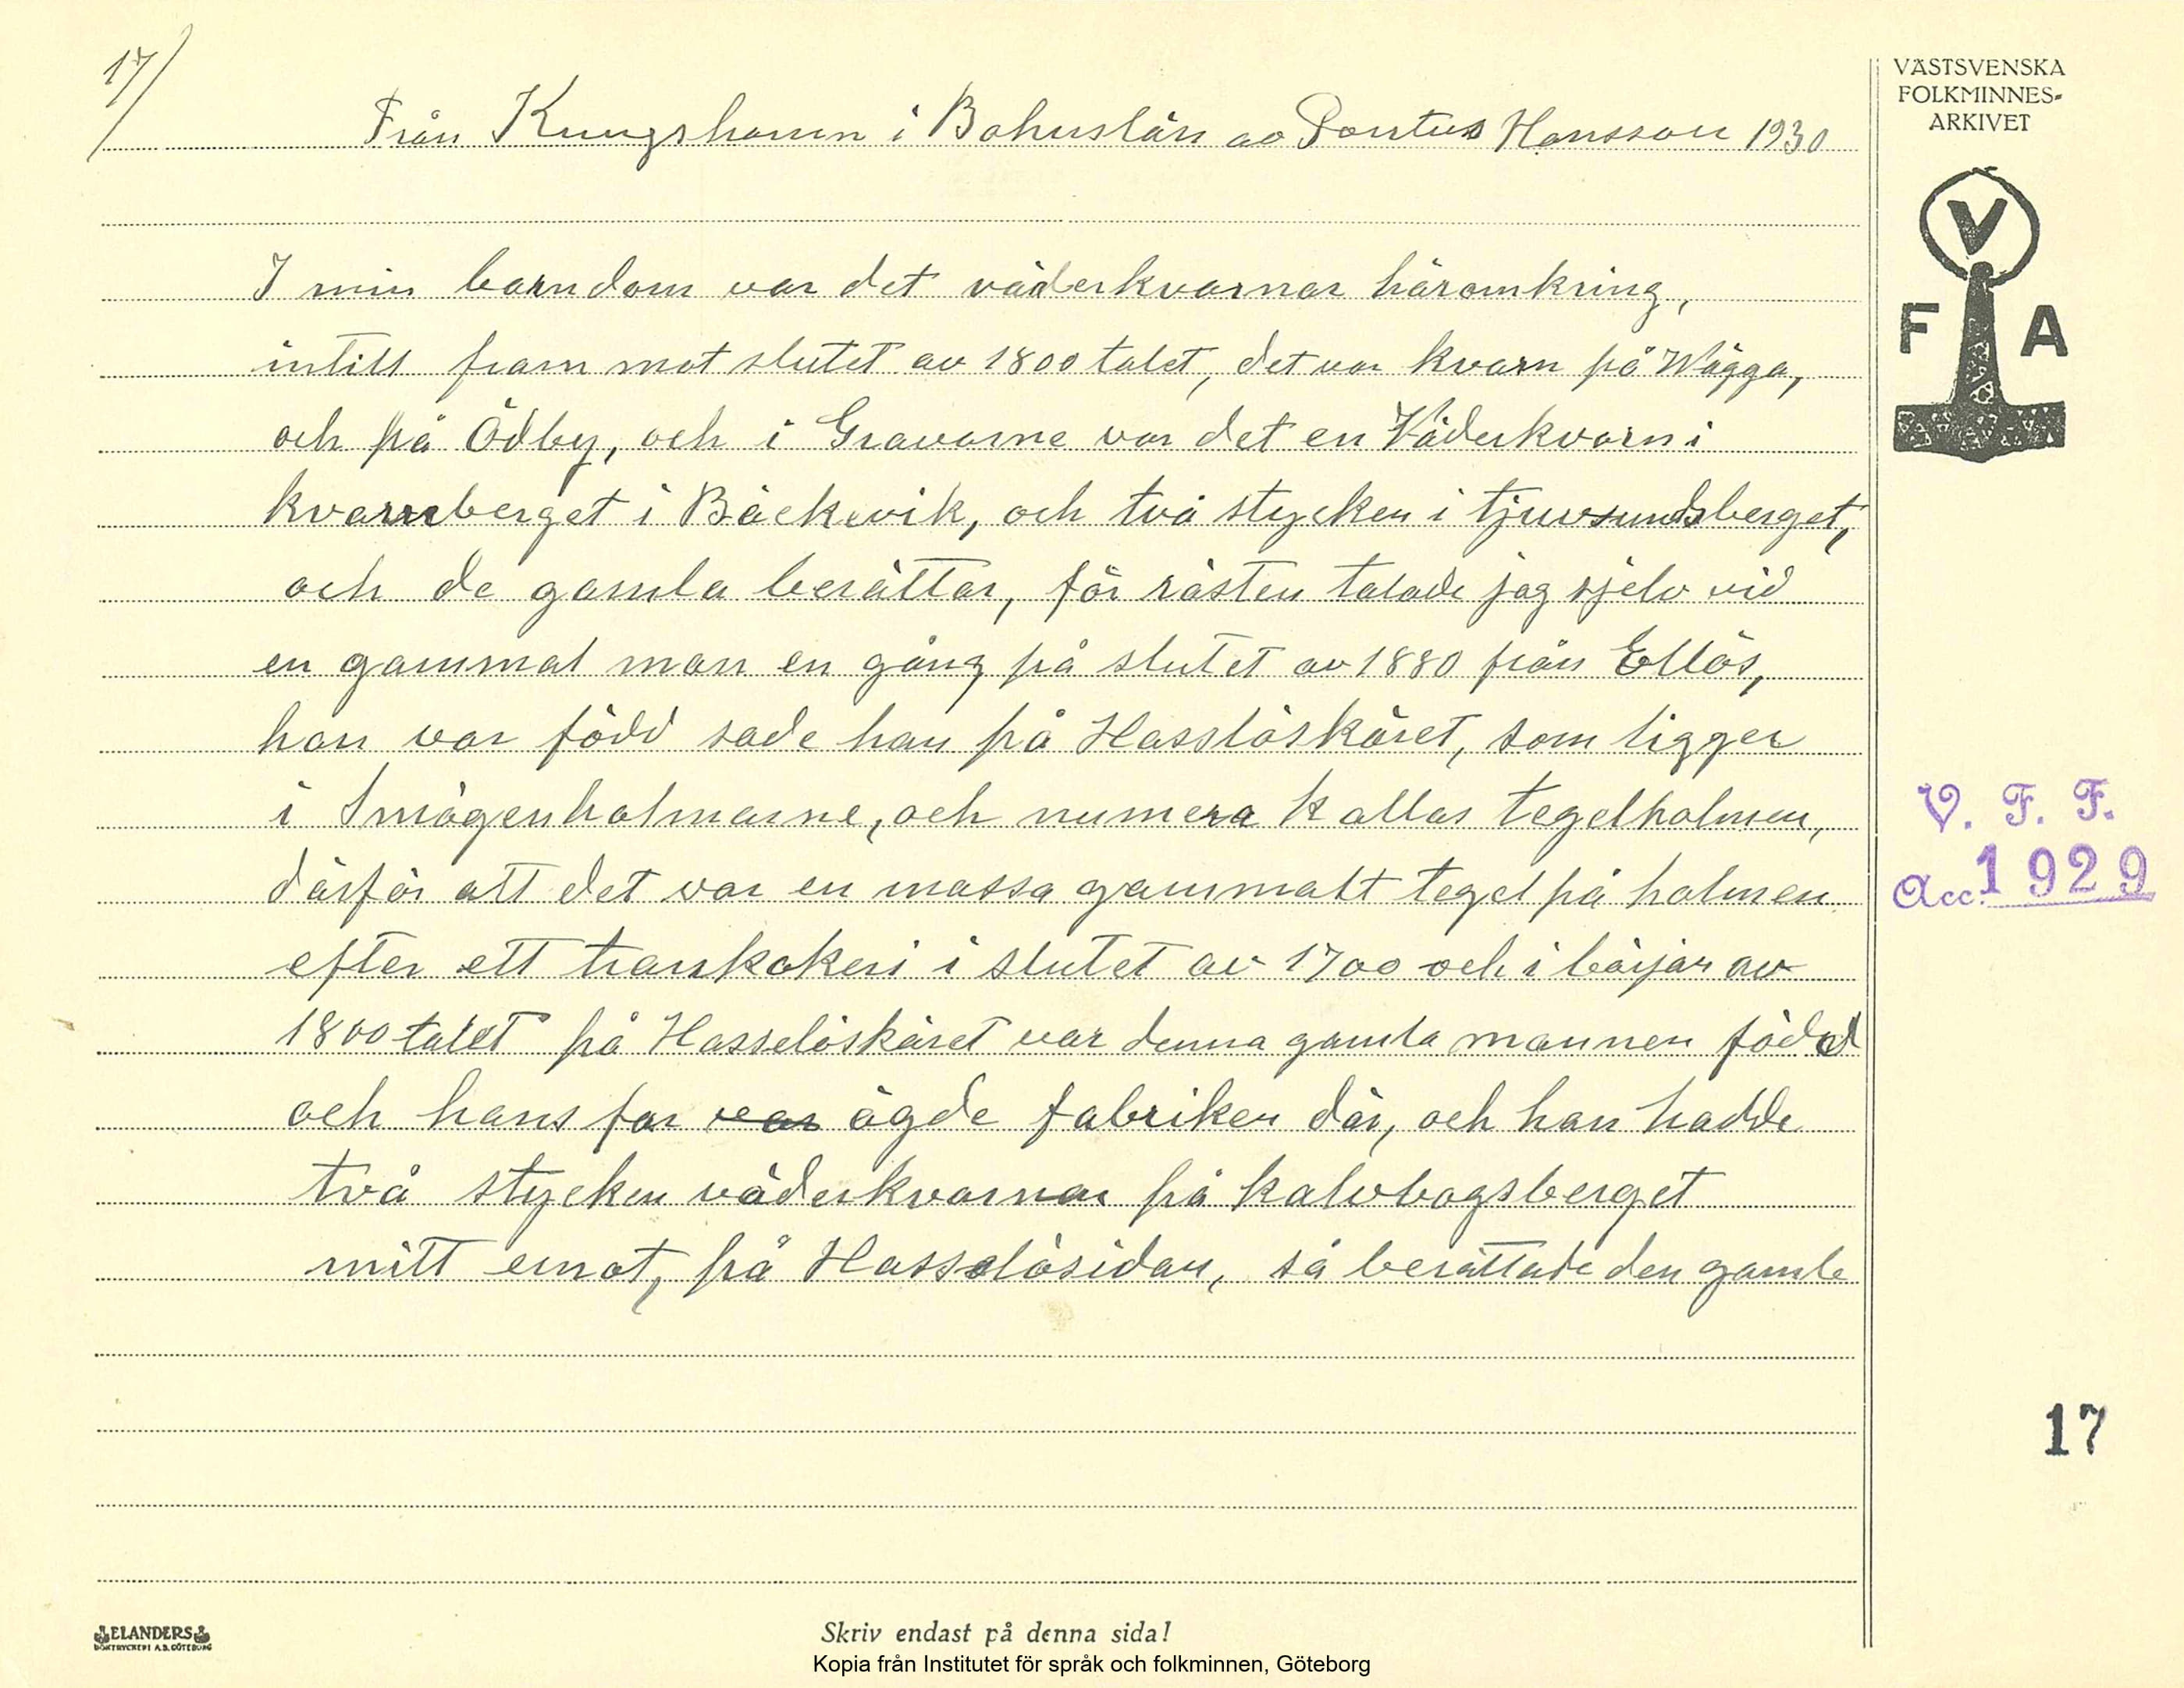 17/
Från Kungshamn i Bohuslän av Pontus Hansson 1930
I min barndom var det väderkvarnar häromkring,
intill fram mot slutet av 1800 talet, det var kvarn på Wägga,
och på Ödby, och i Gravarne var det en Väderkvarn i
kvarnberget i Bäckevik, och två stycken i tjuvsundsberget,
och de gamla berättar, för rästen talade jag sjelv vid
en gammal man en gång på slutet av 1880 från Ellös,
han var född sade han på Hasslöskäret, som ligger
i Smögenholmarne, och numera kallas tegelholmen,
därför att det var en massa gammalt tegel på holmen
efter ett trankokeri i slutet av 1700 och i börjar av
1800 talet på Hasselöskäret var denna gamla mannen född
och hans far var ägde fabriken där, och han hadde
två stycken väderkvarnar på kalvbogsberget
mitt emot, på Hasselösidan, så berättade den gamle
VÄSTSVENSKA
FOLKMINNES-
ARKIVET
V
F A
V. F. F.
Acc. 1929
17
ELANDERS
BOKTRYCKERI A.B. GÖTEBORG
Skriv endast på denna sida!
Kopia från Institutet för språk och folkminnen, Göteborg